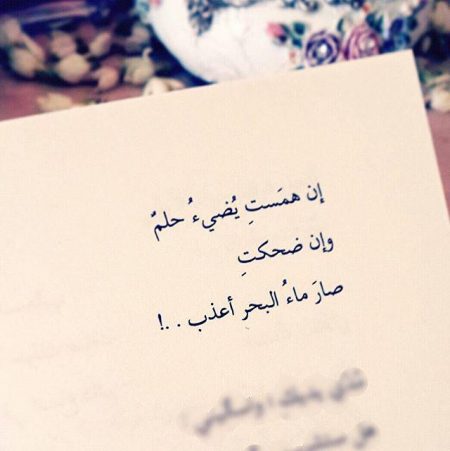 إن همَستِ يُضيءُ حلمٌ
وإن ضحكتِ
صارَ ماءُ البحرِ أعذب . .!